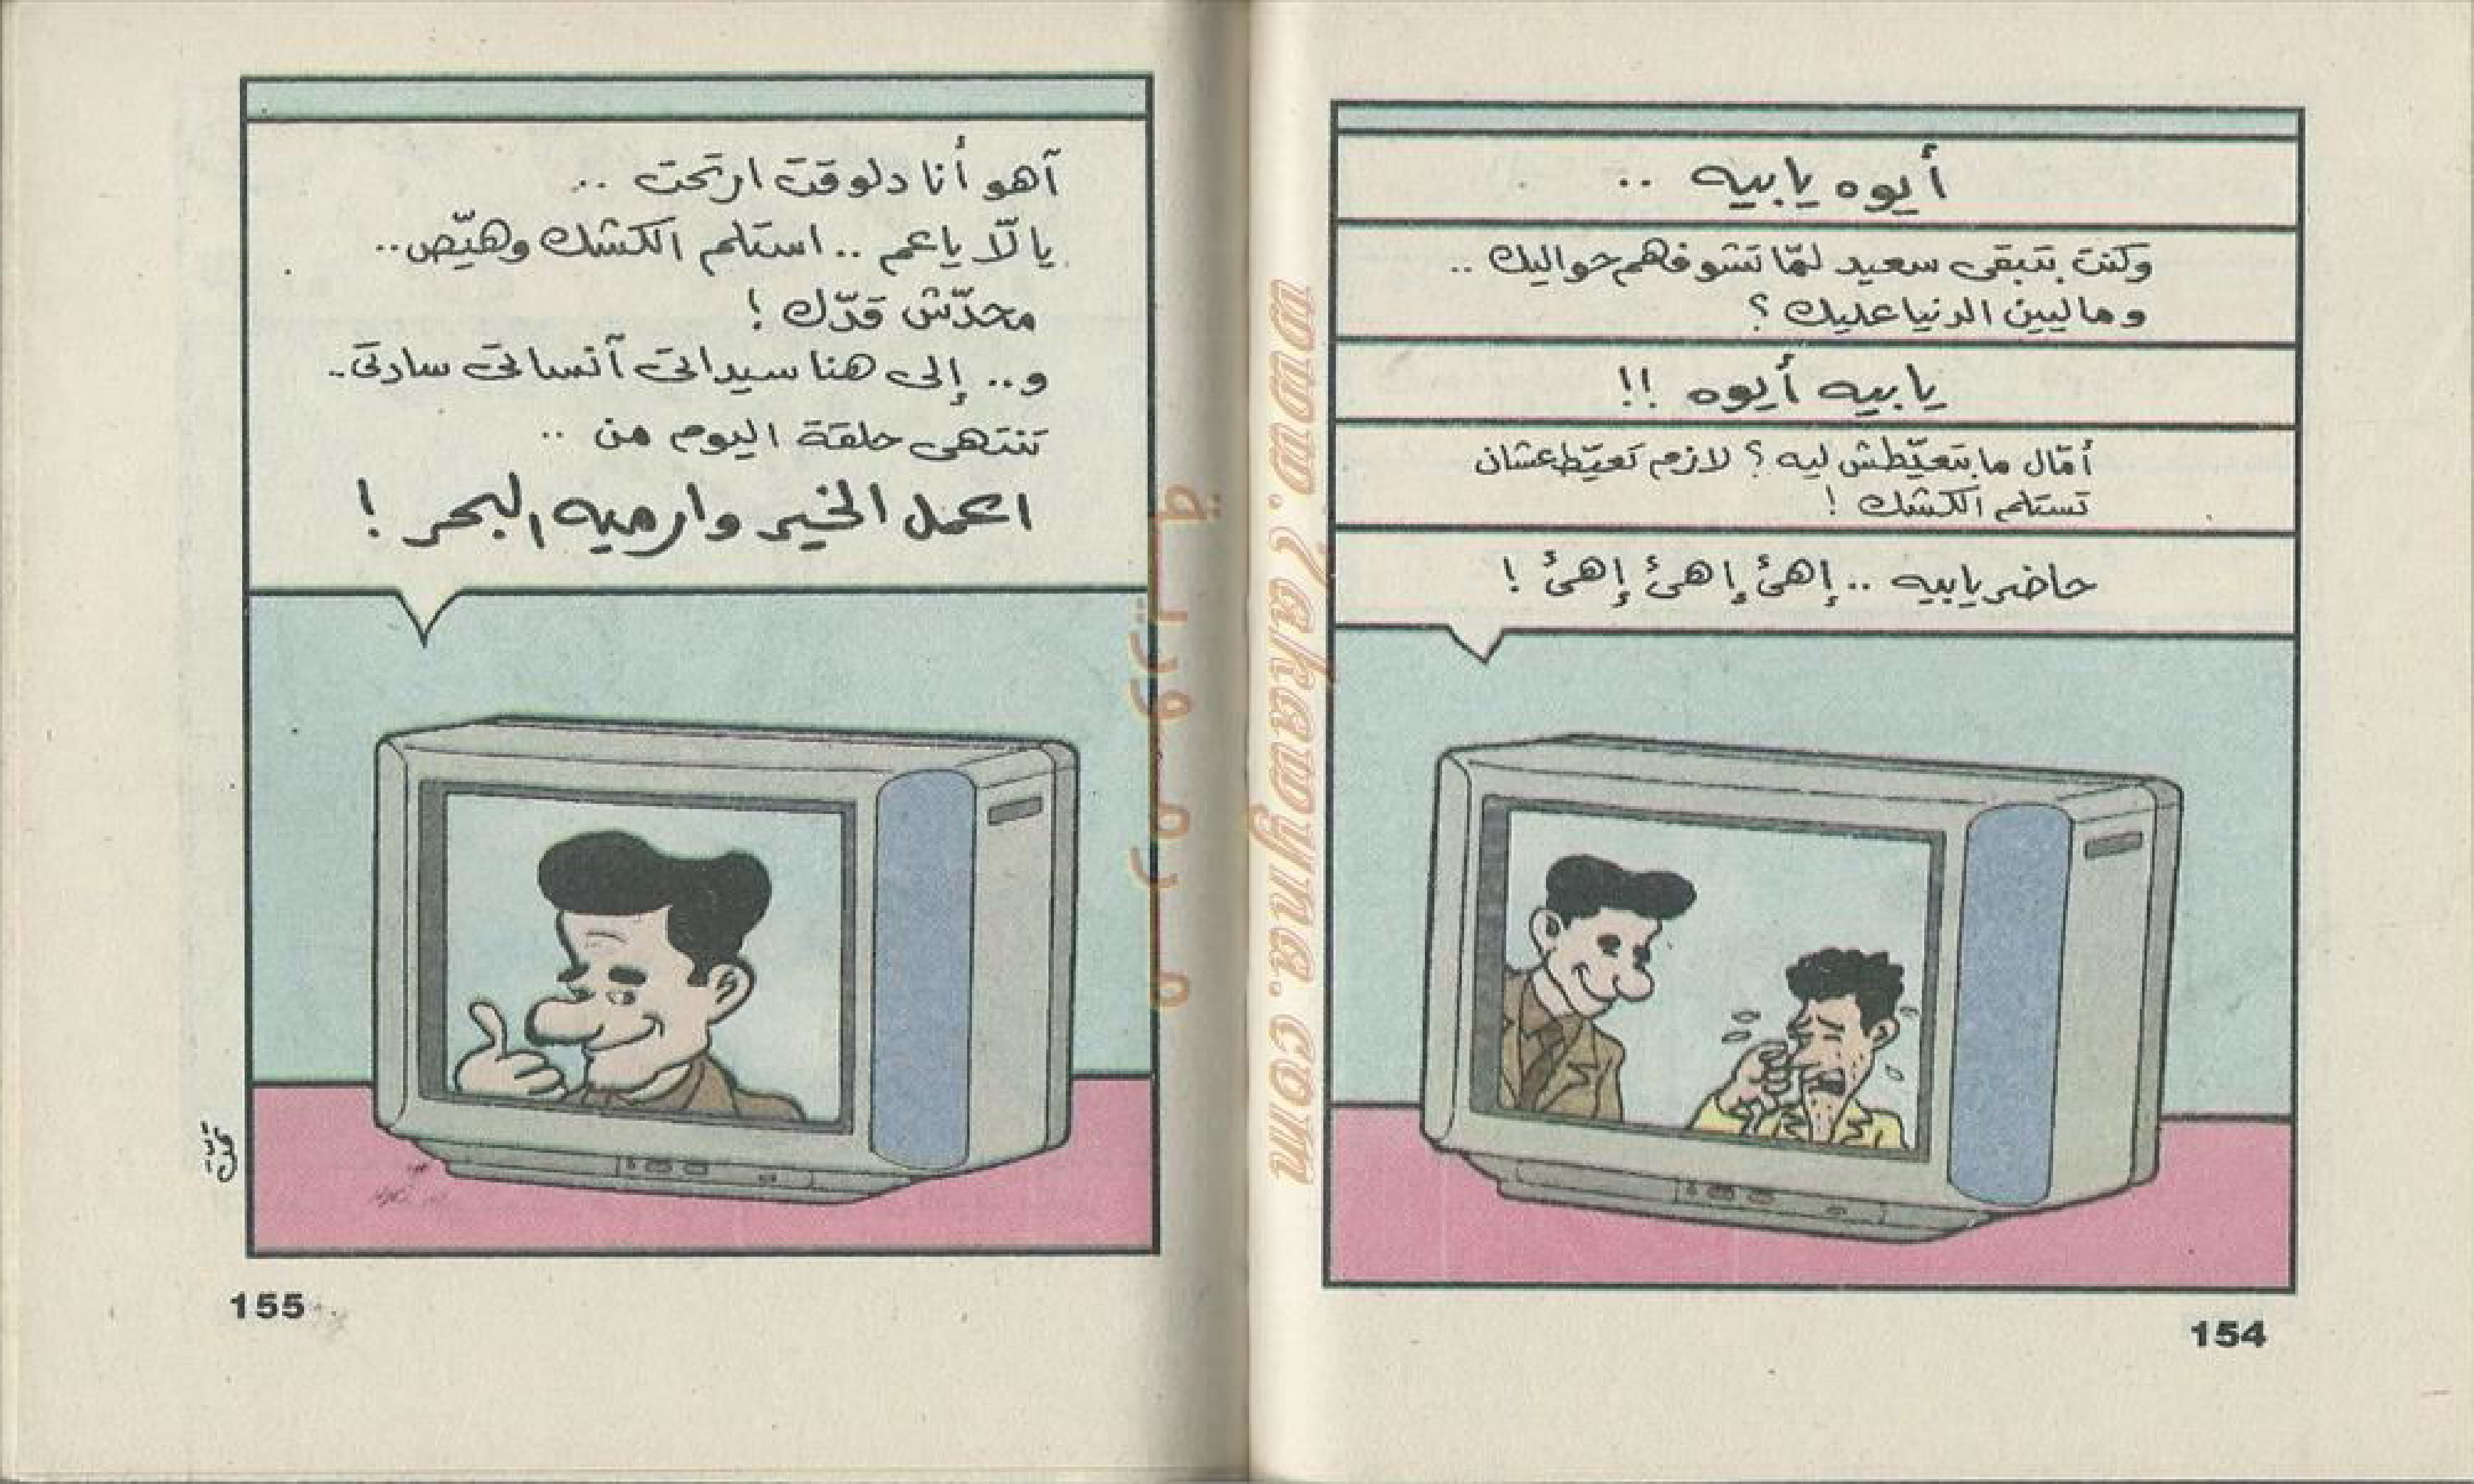 أيوه يابيه ..
وكنت بتبقى سعيد لمّا تشوفهم حواليك ..
وماليين الدنيا عليك ؟
يابيه أيوه !!
أمّال مابتعيّطش ليه ؟ لازم تعيّط عشان
تستلم الكشك !
حاضر يابيه .. إهئ إهئ إهئ !
154
آهو أنا دلوقت ارتحت ..
يالّا ياعم .. استلم الكشك وهيّص ..
محدّش قدّك !
و .. إلى هنا سيداتى آنساتى سادتى ..
تنتهى حلقة اليوم من ..
اعمل الخير وارميه البحر !
155
www.7akawyna.com